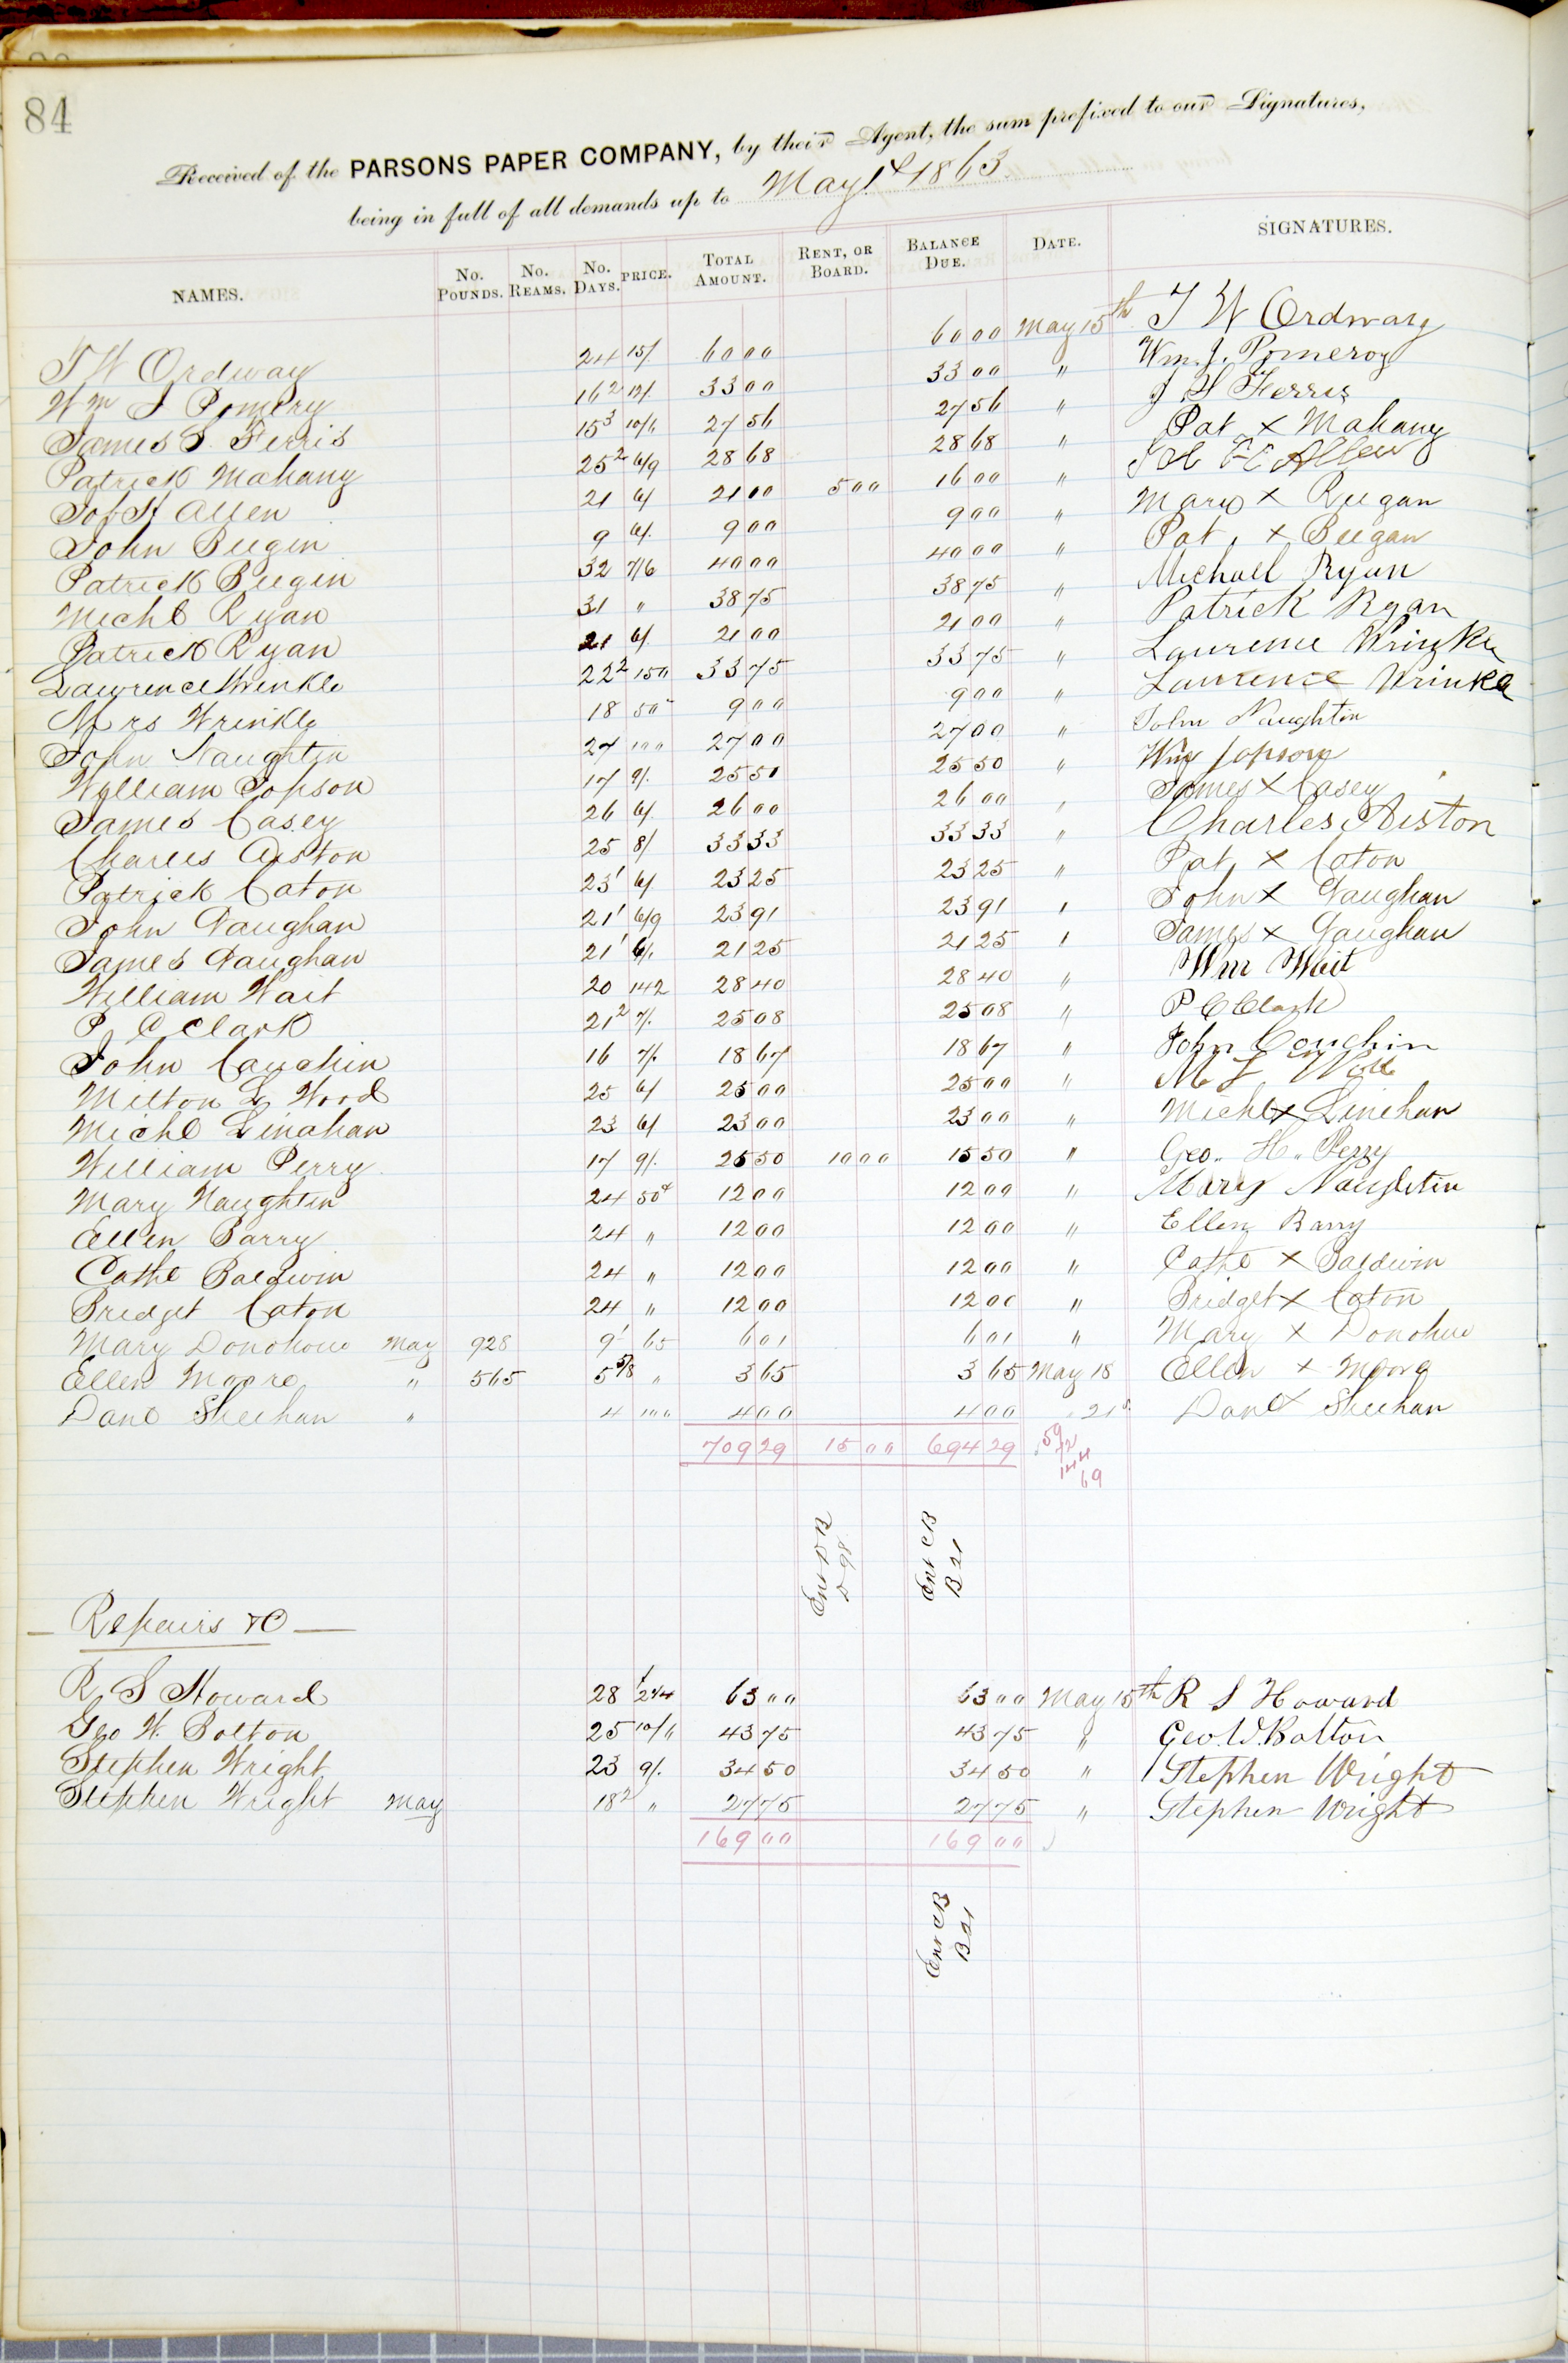 84
Received of the PARSONS PAPER COMPANY, by their Agent, the sum prefixed to our Signatures,
being in full of all demands up to May 1st 1863.
NAMES. No. Pounds. No. Reams. No. Days. PRICE. Total Amount. Rent, or Board. Balance Due. Date. SIGNATURES.
T W Ordway 24 15/ 60 00 60 00 May 15th T W Ordway
Wm J Pomery 16 2 12/ 33 00 33 00 " Wm. J. Pomeroy
James S. Ferris 15 3 10/6 27 56 27 56 " J S Ferris
Patrick Mahany 25 2 6/9 28 68 28 68 " Pat X Mahany
21 6/ 21 00 5 00 16 00 " Allen
John Beegin 9 6/ 9 00 9 00 " Mary X Beegan
Patrick Beegin 32 7/6 40 00 40 00 " Pat. X Beegan
Michl Ryan 31 " 38 75 38 75 " Michael Ryan
Patrick Ryan 21 6/ 21 00 21 00 " Patrick Ryan
Lawrence Wrinkle 22 2 150 33 75 33 75 " Laurence Wrinkle
Mrs Wrinkle 18 50 9 00 9 00 " Laurence Wrinkle
John Naughtin 27 100 27 00 27 00 " John Naughtin
William Jopson 17 9/ 25 50 25 50 " Wm Jopson
James Casey 26 6/ 26 00 26 00 " James X Casey
Charles Aiston 25 8/ 33 33 33 33 " Charles Aiston
Patrick Caton 23 1 6/ 23 25 23 25 " Pat X Caton
John Gaughan 21 1 6/9 23 91 23 91 " John X Gaughan
James Gaughan 21 1 6/ 21 25 21 25 " James X Gaughan
William Wait 20 142 28 40 28 40 " Wm Wait
P C Clark 21 2 7/ 25 08 25 08 " P C Clark
John Couchin 16 7/ 18 67 18 67 " John Couchin
Milton L Wood 25 6/ 25 00 25 00 " M L
Michl Linahan 23 6/ 23 00 23 00 " Michl X Linehan
William Perry 17 9/ 25 50 10 00 15 50 " Geo. H. Perry
Mary Naughtin 24 50c 12 00 12 00 " Mary Naughtin
Ellen Barry 24 " 12 00 12 00 " Ellen Barry
Cathe Baldwin 24 " 12 00 12 00 " Cathe X Baldwin
Bridget Caton 24 " 12 00 12 00 " Bridget X Caton
Mary Donohoue May 928 9 1 65 6 01 6 01 " Mary X Donohue
Ellen Moore " 565 5 5/8 " 3 65 3 65 May 18 Ellen X Moore
Danl Sheehan " 4 100 4 00 4 00 " 21st Danl X Sheehan
709 29 15 00 694 29 59
72
144
69
Ent D B
D 98
Ent C B
B 21
Repairs &C
R S Howard 28 2 1/4 63 00 63 00 May 15th R S Howard
Geo W. Bolton 25 10/6 43 75 43 75 " Geo. W. Bolton
Stephen Wright 23 9/ 34 50 34 50 " Stephen Wright
Stephen Wright May 18 2 " 27 75 27 75 " Stephen Wright
169 00 169 00
Ent C B
B 21